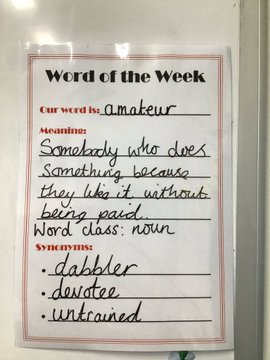 Word of the Week
Our word is: amateur
Meaning:
Somebody who does
something because
they like it without
being paid.
Word class: noun
Synonyms:
• dabbler
• devotee
• untrained